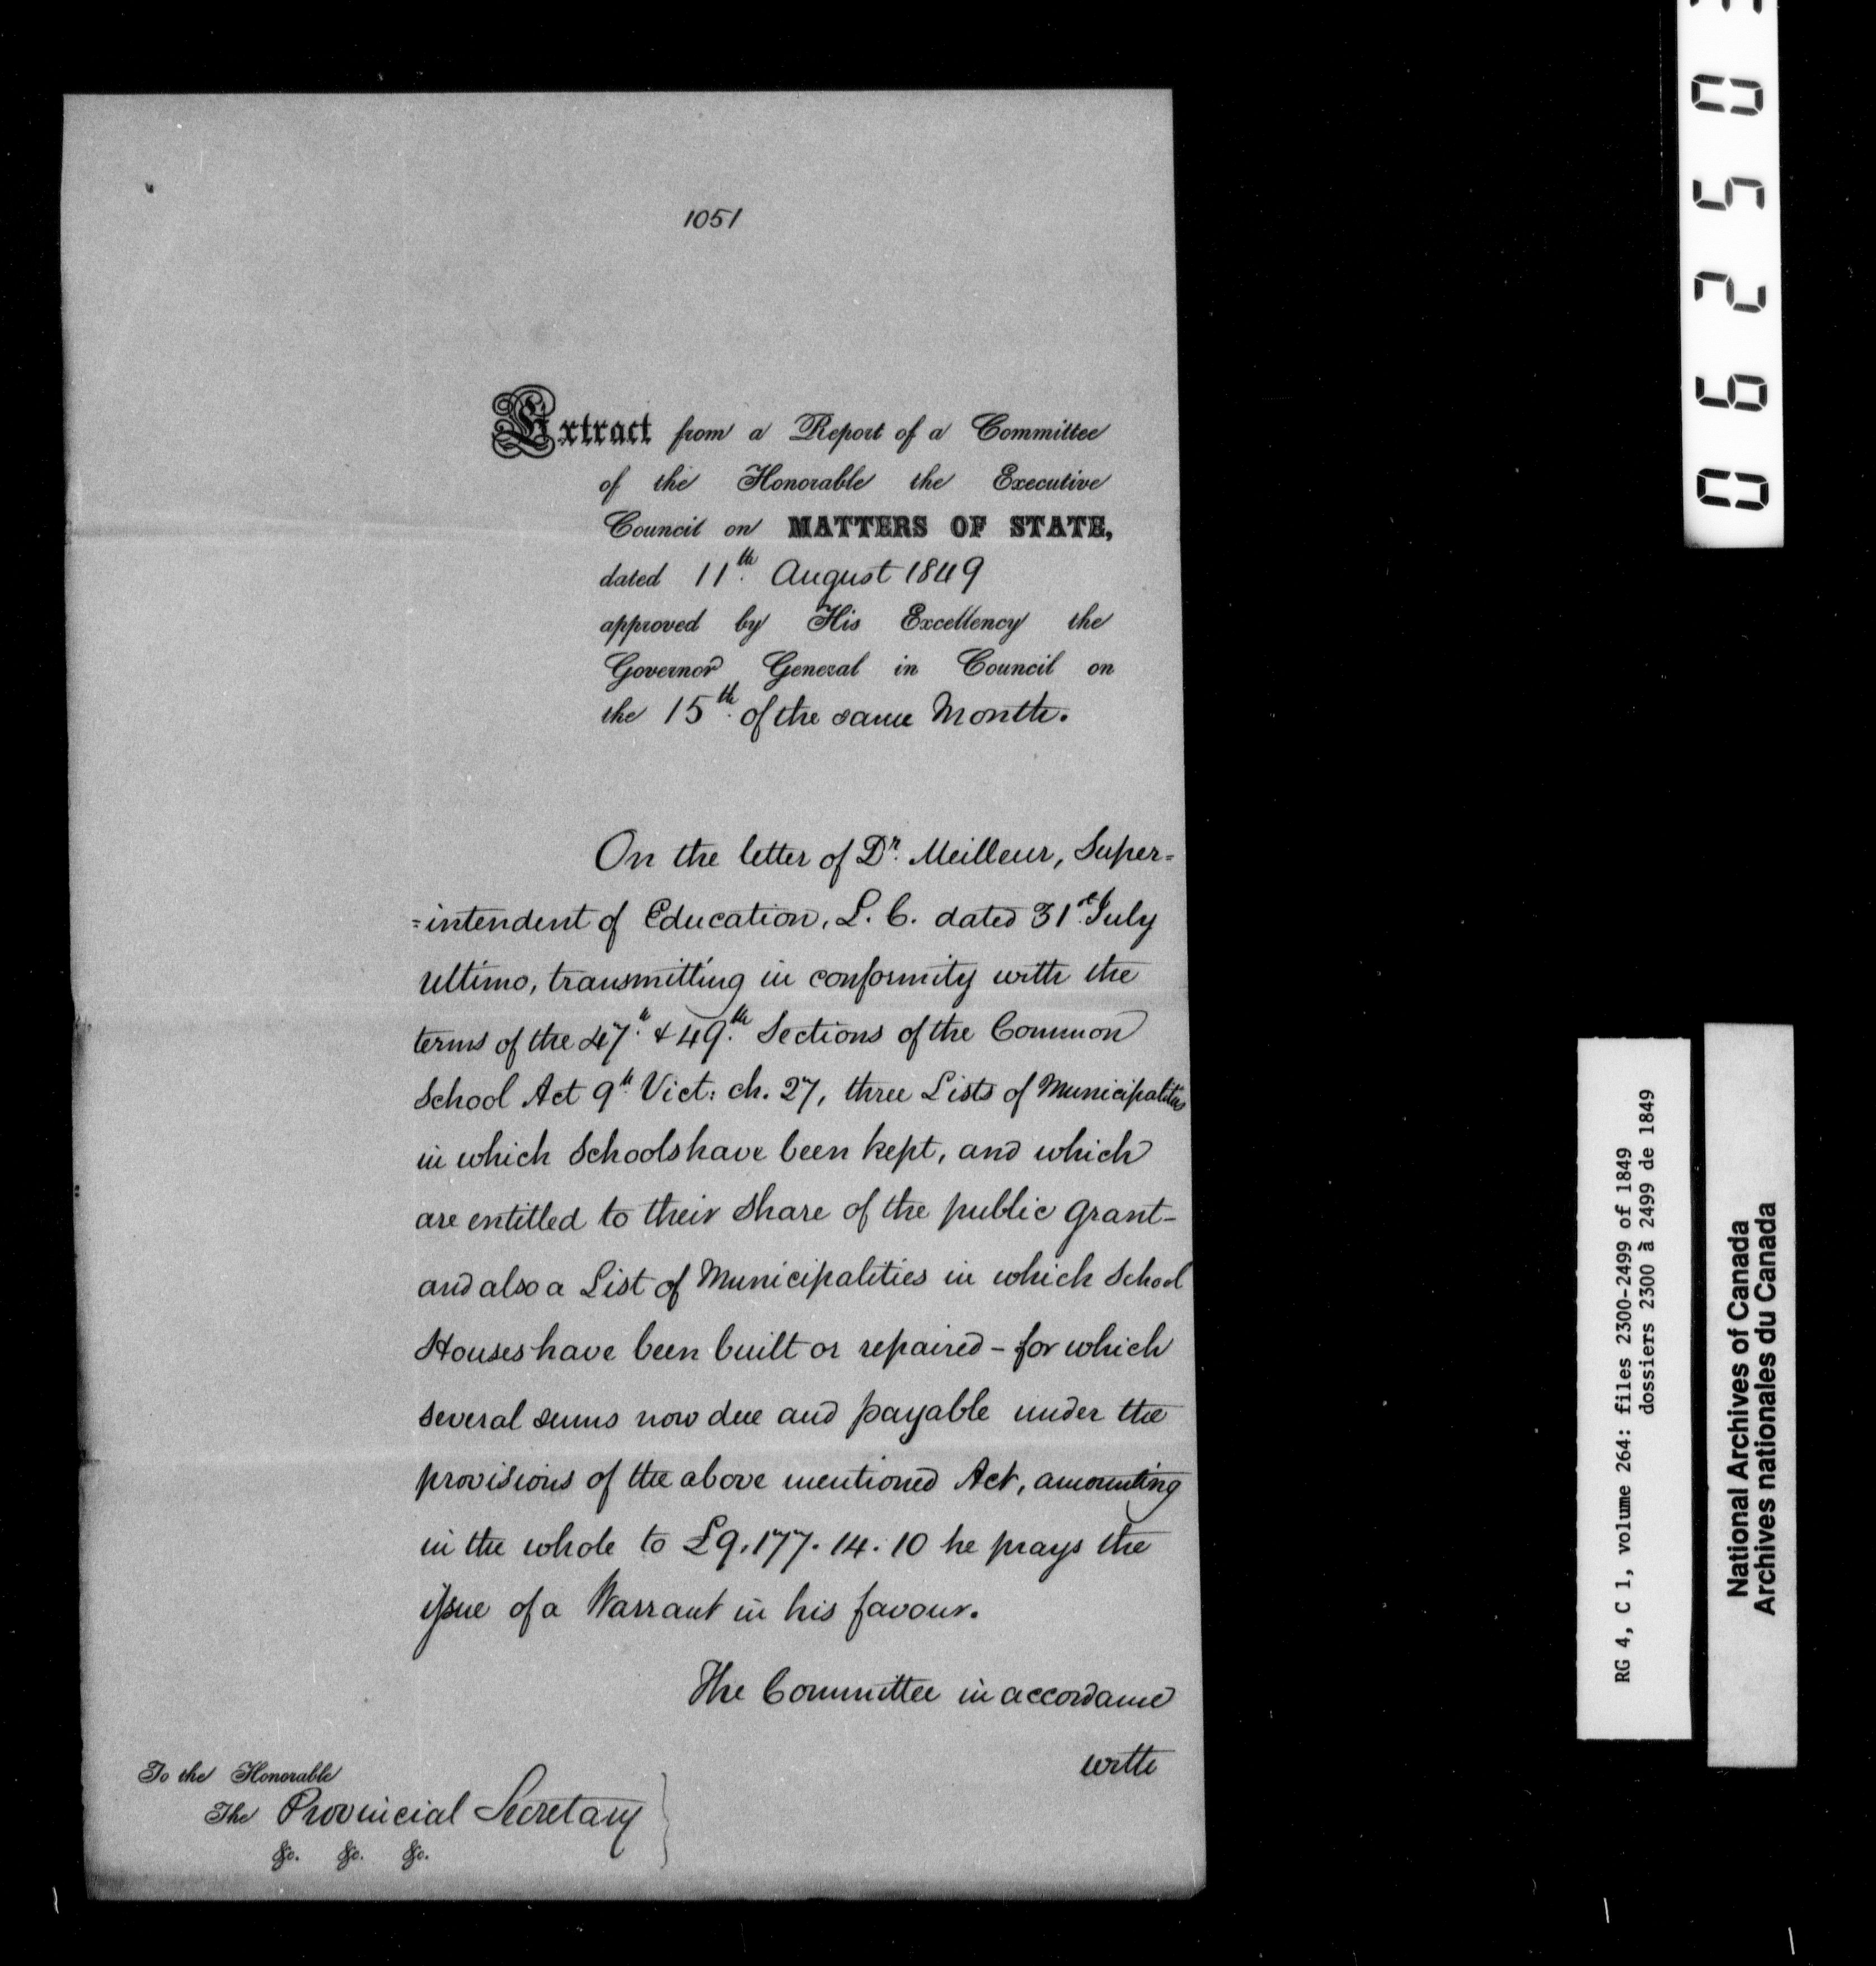 1051
Extract from a Report of a Committee
of the Honorable the Executive
Council on MATTERS OF STATE,
dated 11th. August 1849
approved by His Excellency the
Governor General in Council on
the 15th. of the same Month.
On the letter of Dr. Meilleur, Super=
=intendent of Education, L. C. dated 31st. July
ultimo, transmitting in conformity with the
terms of the 47th. & 49th. Sections of the Common
School Act 9th. Vict: ch. 27, three Lists of Municipalities
in which Schools have been kept, and which
are entitled to their share of the public grant-
and also a List of Municipalities in which School
Houses have been built or repaired - for which
several sums now due and payable under the
provisions of the above mentioned Act, amounting
in the whole to £9,177. 14. 10 he prays the
issue of a Warrant in his favour.
The Committee in accordance
with
To the Honorable
The Provincial Secretary
&c. &c. &c.
06250
RG 4, C 1, volume 264: files 2300-2499 of 1849
dossiers 2300 à 2499 de 1849
National Archives of Canada
Archives nationales du Canada